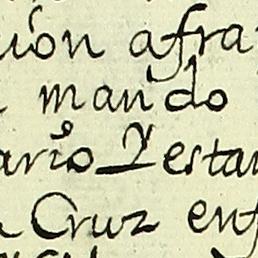 ión afra
mando
ario Y estan
Cruz enf